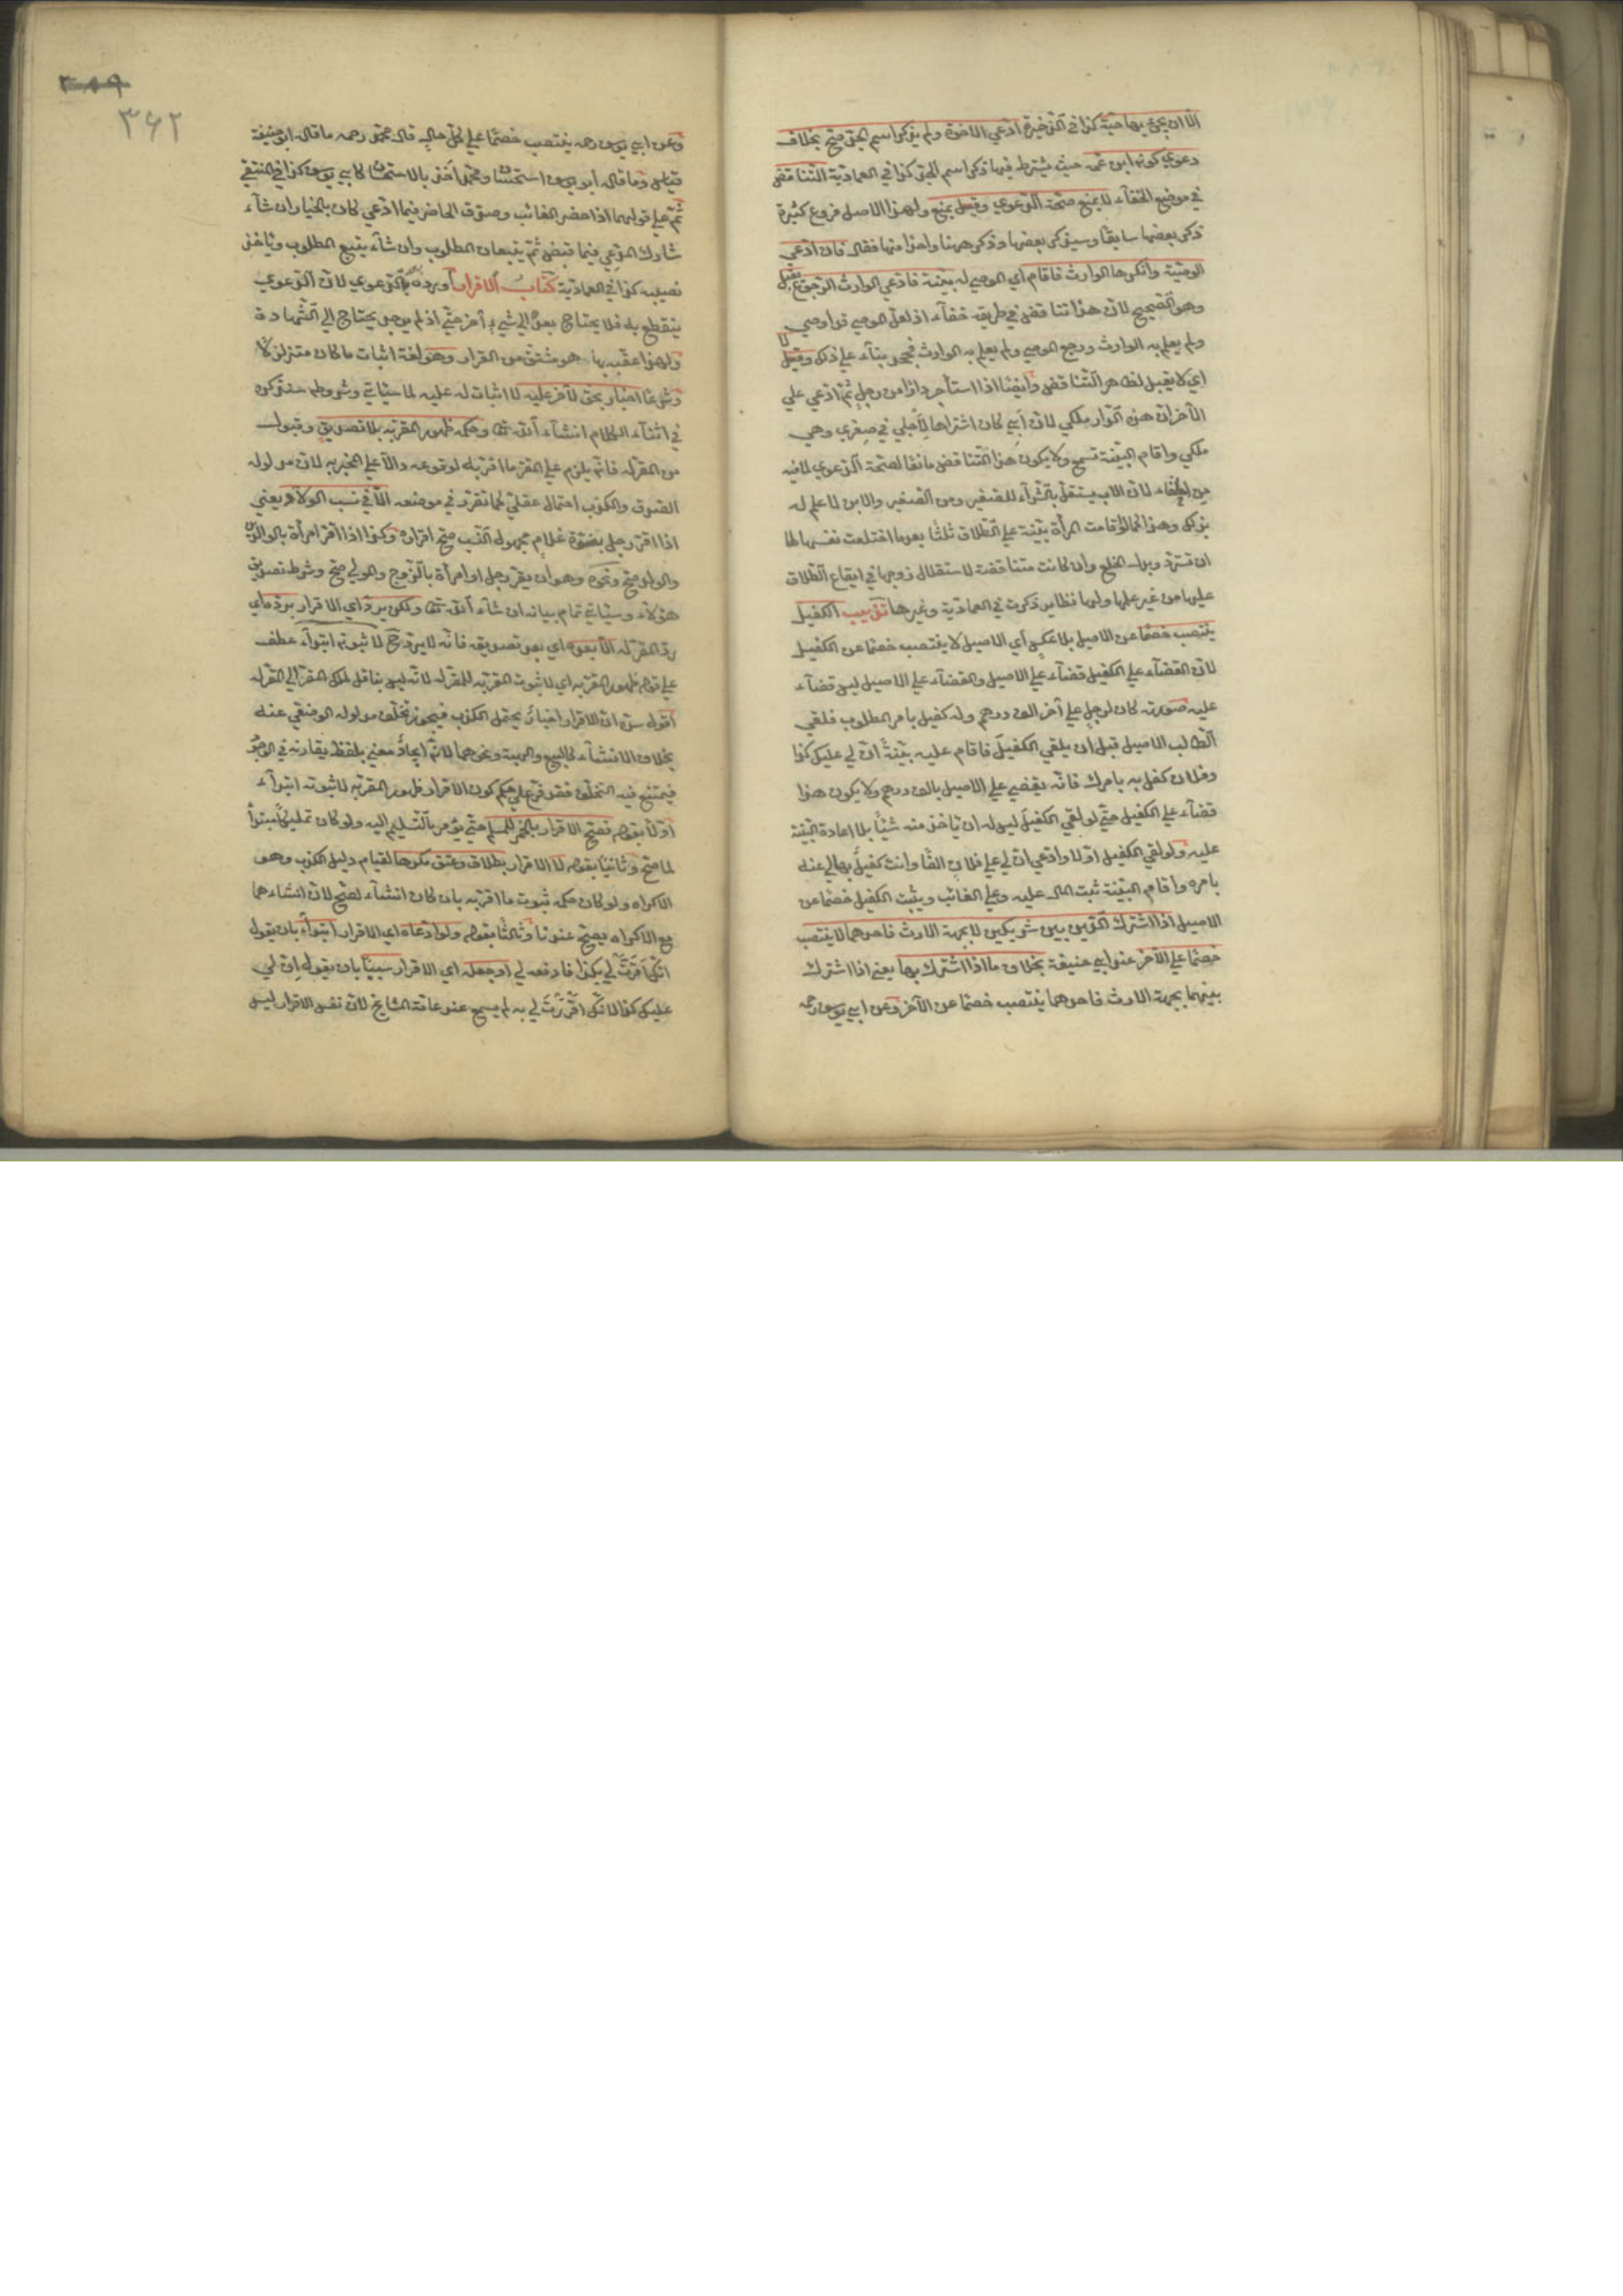 الا ان يجئ بها حية كذا في الذخيرة ادعي الاخوة ولم يذكر اسم الجد صح بخلاف
دعوي كونه ابن عمه حيث يشترط فيها ذكر اسم الجد كذا في العمادية التناقض
في موضع الخفاء لا يمنع صحة الدعوي وقيل يمنع ولهذا الاصل فروع كثيرة
ذكر بعضها سابقا وسيذكر بعضها وذكر ههنا واحدا منها فقال فان ادعي
الوصية وانكرها الوارث فاقام اي الموصي له بينة فادعي الوارث الرجوع يقبل
وهو الصحيح لان هذا تناقض في طريقه خفاء اذ لعل الموصي قد اوصي
ولم يعلم به الوارث ورجع الموصي ولم يعلم به الوارث فجحد بناء علي ذلك وقيل لا
اي لا يقبل لظاهر التناقض وايضا اذا استأجر دارا من رجل ثم ادعي علي
الآخر ان هذه الدار ملكي لان ابي كان اشتراها لأجلي في صغري وهي
ملكي واقام البينة تسمع ولا يكون هذا التناقض مانعا لصحة الدعوي لما فيه
من الخفاء لان الاب يستقل بالشراء للصغير ومن الصغير والابن لا علم له
بذلك وهذا كما لو اقامت المرأة بينة علي الطلاق ثلثا بعدما اختلعت نفسها لها
ان تسترد بدل الخلع وان كانت متناقضة لاستقلال زوجها في ايقاع الطلاق
عليها من غير علمها ولهذا نظاير ذكرت في العمادية وغيرها تذنيب الكفيل
ينتصب خصما عن الاصيل بلا عكس أي الاصيل لا ينتصب خصما عن الكفيل
لان القضاء علي الكفيل قضاء علي الاصيل والقضاء علي الاصيل ليس قضاء
عليه صورته كان لرجل علي آخر الف درهم وله كفيل بامر المطلوب فلقي
الطالب الاصيل قبل ان يلقي الكفيل فاقام عليه بينة ان لي عليك كذا
وفلان كفل به بامرك فانه يقضي علي الاصيل بالف درهم ولا يكون هذا
قضاء علي الكفيل حتي لو لقي الكفيل ليس له ان يأخذ منه شيئا بلا اعادة البينة
عليه ولو لقي الكفيل اولا وادعي ان لي علي فلان الفا وانت كفيل بها لي عنه
بامره واقام البينة ثبت المال عليه وعلي الغائب ويثبت الكفيل خصما عن
الاصيل اذا اشترك الدين بين شريكين لا بجهة الارث فاحدهما لا ينتصب
خصما علي الآخر عند ابي حنيفة بخلاف ما اذا اشترك بها يعني اذا اشترك
بينهما بجهة الارث فاحدهما ينتصب خصما عن الآخر وعن ابي يوسف رحمه
٣٦٢
وعن ابي يوسف رحمه ينتصب خصما علي كل حال قال محمد رحمه ما قال ابو حنيفة
قياس وما قال ابو يوسف استحسان ومحمد أخذ بالاستحسان كابي يوسف كذا في المنتقي
ثم علي قولهما اذا حضر الغائب وصدق الحاضر فيما ادعي كان بالخيار ان شاء
شارك المدعي فيما قبض ثم يتبعان المطلوب وان شاء يتبع المطلوب ويأخذ
نصيبه كذا في العمادية كتاب الاقرار أورده بعد الدعوي لان الدعوي
ينقطع به فلا يحتاج بعده الي شيء آخر حتي اذا لم يوجد يحتاج الي الشهادة
ولهذا عقبه بها هو مشتق من القرار وهو لغة اثبات ما كان متزلزلا
وشرعا اخبار بحق لآخر عليه لا اثبات له عليه لما سيأتي وشروطه ستذكر
في اثناء الكلام انشاء الله تعالي وحكمه ظهور المقر به بلا تصديق وقبول
من المقر له فانه يلزم علي المقر ما اقر به لوقوعه دالا علي المخبر به لان مدلوله
الصدق والكذب احتمال عقلي كما تقرر في موضعه الا في نسب الولاد يعني
اذا اقر رجل ببنوة غلام مجهول النسب صح اقراره وكذا اذا اقر امرأة بالوالدين
والولد صح ونحوه وهو ان يقر رجل او امرأة بالزوج والمولي صح وشرط تصديق
هؤلاء وسيأتي تمام بيانه ان شاء الله تعالي ولكن يرد اي الاقرار برده اي
رد المقر له الا بعده اي بعد تصديقه فانه لا يرتد ح لا ثبوته ابتداء عطف
علي قوله ظهور المقر به اي لا ثبوت المقر به للمقر له لانه ليس بناقل لملك المقر الي المقر له
اقول سره ان الاقرار اخبار يحتمل الكذب فيجوز تخلف مدلوله الوضعي عنه
بخلاف الانشاء كالبيع والهبة ونحوهما لانه ايجاد معني بلفظ يقارنه في الوجود
فيمتنع فيه التخلف فقد فرع علي حكم كون الاقرار ظهور المقر به لا ثبوته ابتداء
اولا بقوله فصح الاقرار بالخمر للمسلم حتي يؤمر بالتسليم اليه ولو كان تمليكا مبتدأ
لما صح وثانيا بقوله لا الاقرار بطلاق وعتق مكرها لقيام دليل الكذب وهو
الاكراه ولو كان حكمه ثبوت ما اقر به بان كان انشاء لصح لان انشاءهما
مع الاكراه يصح عندنا وثالثا بقوله ولو ادعاه اي الاقرار ابتداء بان يقول
انك اقررت لي بكذا فادفعه لي او جعله اي الاقرار سببا بان يقول ان لي
عليك كذا لانك اقررت لي به لم يسمع عند عامة المشايخ لان نفس الاقرار ليس